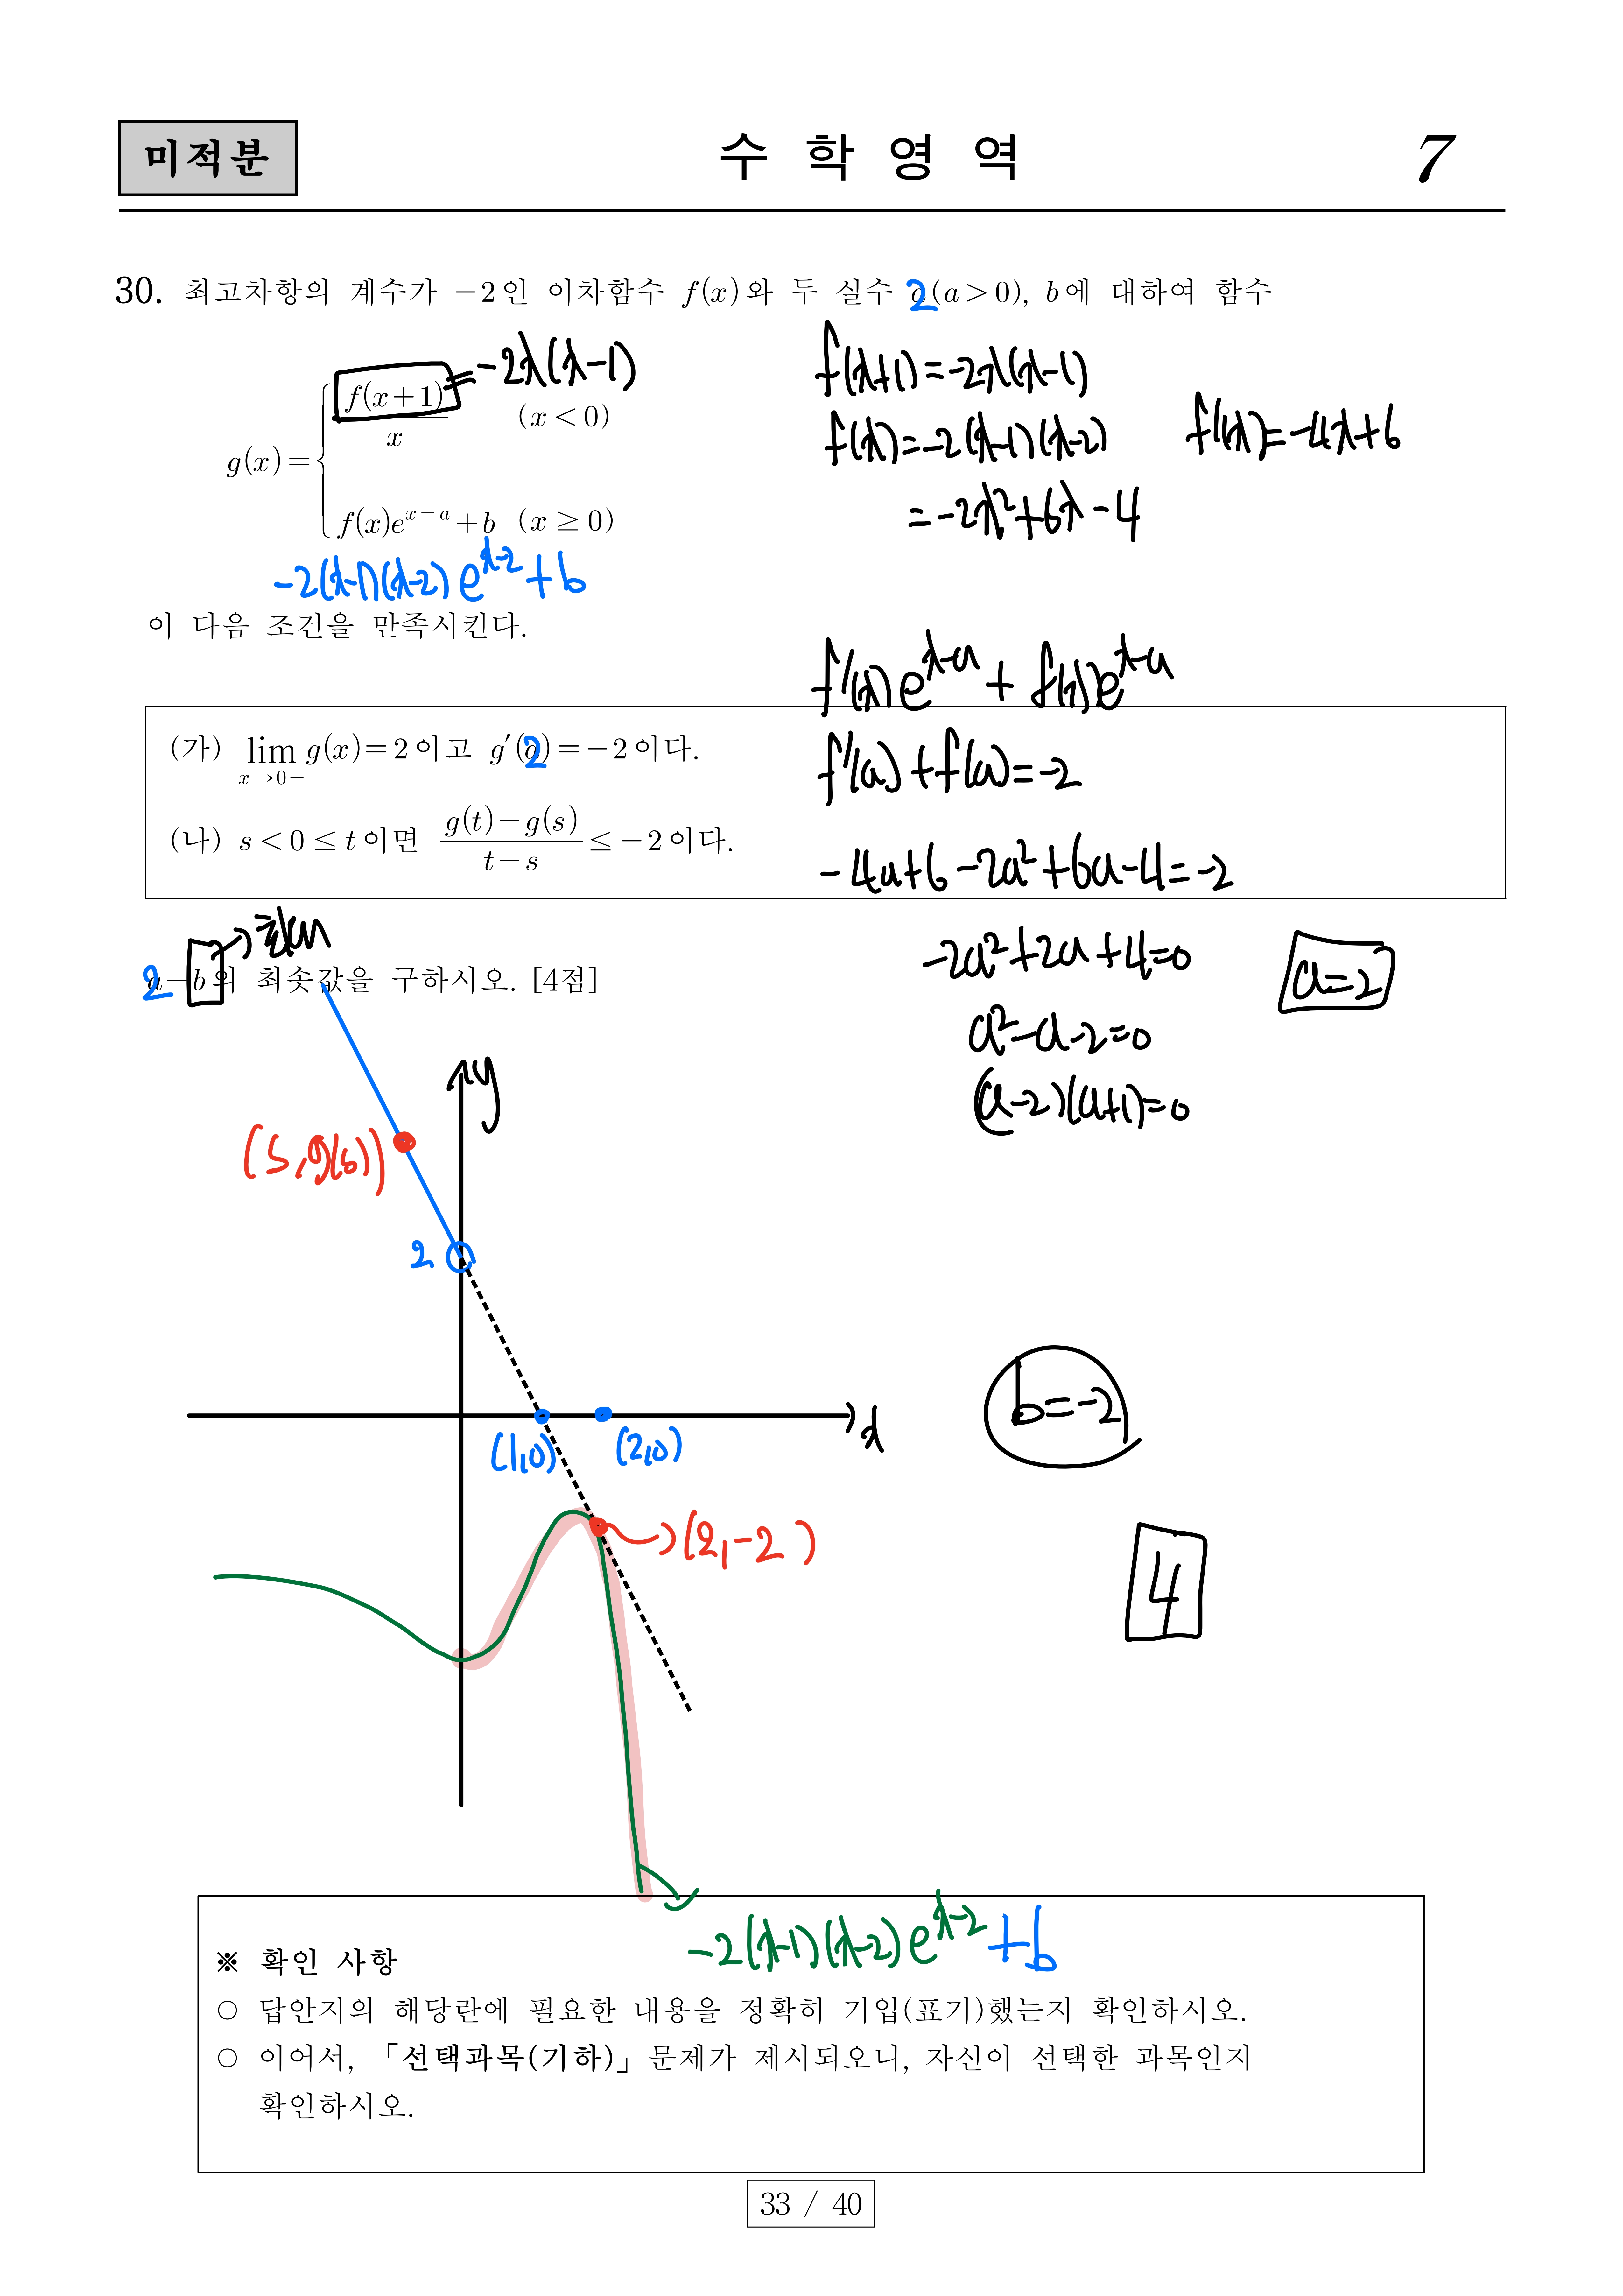 미적분
수 학 영 역
7
30. 최고차항의 계수가 −2인 이차함수 f(x)와 두 실수 a(a>0), b에 대하여 함수
2
g(x)={ f(x+1)/x (x<0)
f(x)e^{x−a}+b (x≥0)
=-2x(x-1)
-2(x-1)(x-2)e^{x-2}+b
f(x+1)=-2x(x-1)
f(x)=-2(x-1)(x-2)
=-2x²+6x-4
f'(x)=-4x+6
이 다음 조건을 만족시킨다.
f'(x)e^{x-a}+f(x)e^{x-a}
(가) lim_{x→0−} g(x)=2이고 g′(a)=−2이다.
2
f'(a)+f(a)=-2
(나) s<0≤t이면 (g(t)−g(s))/(t−s)≤−2이다.
-4a+6-2a²+6a-4=-2
a−b의 최솟값을 구하시오. [4점]
2
-2a²+2a+4=0
a=2
a²-a-2=0
(a-2)(a+1)=0
y
(s,g(s))
2
x
(1,0)
(2,0)
b=-2
(2,-2)
4
-2(x-1)(x-2)e^{x-2}+b
※ 확인 사항
○ 답안지의 해당란에 필요한 내용을 정확히 기입(표기)했는지 확인하시오.
○ 이어서, 「선택과목(기하)」 문제가 제시되오니, 자신이 선택한 과목인지
확인하시오.
33 / 40